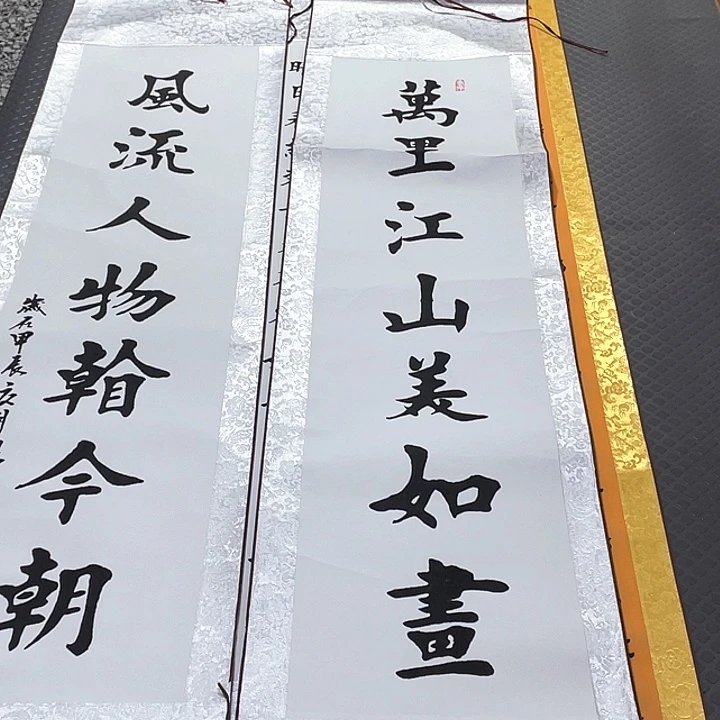 萬里江山美如畫
風流人物今朝
歲在甲辰